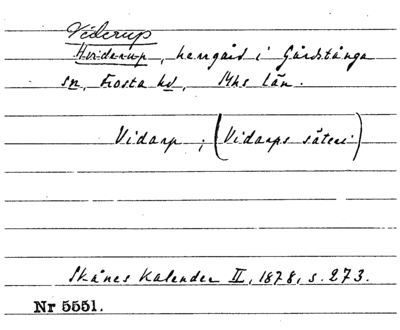 Viderup
Hviderup, herrgård i Gårdstånga
sn, Frosta hd, Mhs län.
Vidarp ; (Vidarps säteri)
Skånes Kalender II, 1878, s. 273.
Nr 5551.